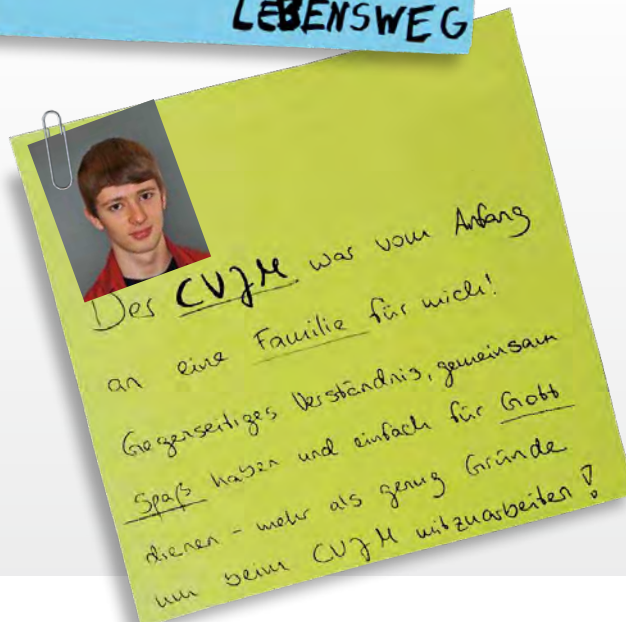 LEBENSWEG
Der CVJM war vom Anfang
an eine Familie für mich!
Gegenseitiges Verständnis, gemeinsam
Spaß haben und einfach für Gott
dienen - mehr als genug Gründe
um beim CVJM mitzuarbeiten!